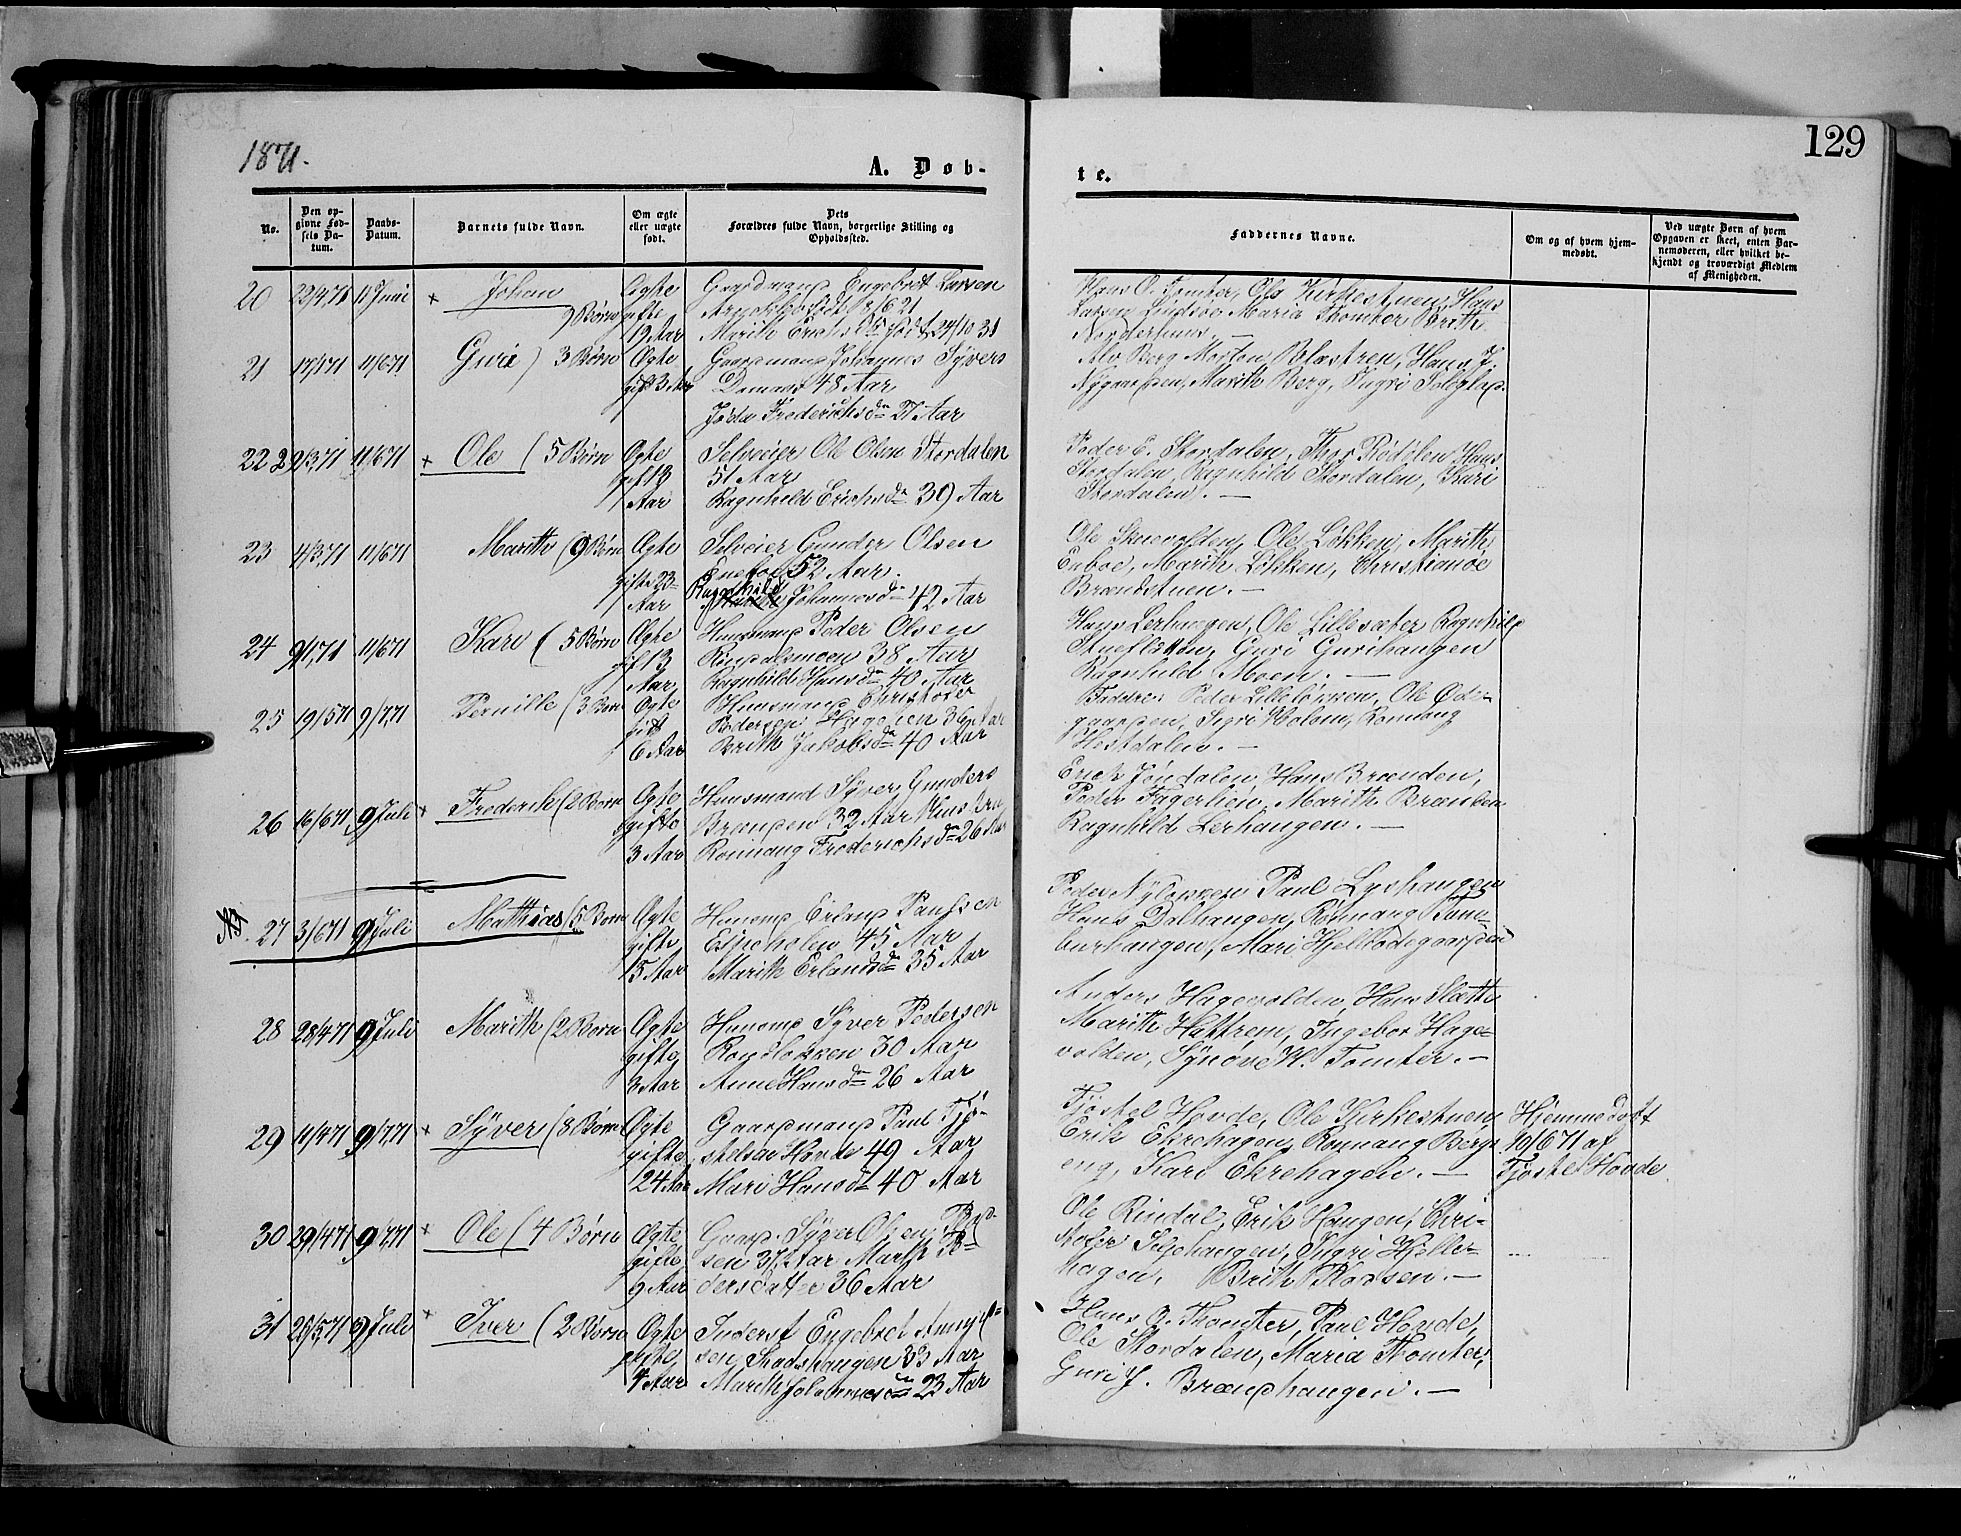 129
1871.
A. Døb-
te.
No.
Den op-
givne Fød-
sels Da-
tum.
Daabs-
Datum.
Barnets fulde Navn.
Om ægte
eller uægte
født.
Dets
Forældres fulde Navn, borgerlige Stilling og
Opholdssted.
Faddernes Navne.
Om og af hvem hjem-
medøbt.
Ved uægte Børn af hvem
Opgaven er skeet, enten Bar-
nemoderen, eller hvilket be-
kjendt og troværdigt Medlem
af Menigheden.
20 22/4 71 11 Juni + Johan
9 Børn
Ægte
gifte
19 Aar
Gaardmand Engebret Larsen
født 21
Marith Erichsdn født 24/10 31
Hans O. Tomter, Ole Kirkestuen, Hans
Larsen Maria Thomter Brith
21 17/1 71 11/6 71 Guri ) 3 Børn
Ægte
gift 3 Aar
Gaardmand Johannes Syvers
48 Aar
Frederichsdn 27 Aar
Berg Morten Hans J.
Marith Berg, Ingri
22 29/3 71 11/6 71 + Ole ( 5 Børn
Ægte
gift 13
Aar
Selveier Ole Olsen Stordalen
51 Aar
Ragnhild Erichsdn 39 Aar
Peder E. Stordalen, Thor Hans
Stordalen, Ragnhild Stordalen, Kari
Stordalen. —
23 4/3 71 11/6 71 Marith ( 9 Børn
Ægte
gifte 23
Aar
Selveier Gunder Olsen
52 Aar.
Ragnhild
Johannesdn 42 Aar
Ole Ole Løkken, Marith
Marith Løkken, Christianoe
Brændstuen. —
24 9/1 71 11/6 71 Kari ( 5 Børn
Ægte
gift 13
Aar
Huusmand Peder Olsen
Rindalsmoen 38 Aar
Ragnhild Hansdn 40 Aar
Hans Lerhaugen, Ole Lillesæter Ragnhild
Guri Gurihaugen
Ragnhild Moen. —
25 19/5 71 9/7 71 Pernille ( 3 Børn
Ægte
gift
6 Aar
Huusmand Christofer
Pedersen 36 Aar
Brith Jakobsdn 40 Aar
Faddere: Peder Ole Øde-
gaarden, Sigri Holom, Rønnaug
Hestdalen. —
26 16/6 71 9 Juli + Frederik ( 2 Børn
Ægte
gifte
3 Aar
Huusmand Syver Gunders
Brænden 32 Aar Hustru
Rønnaug Frederichsdn 26 Aar
Erich Jøndalen Hans Brænden,
Peder Fagerlien, Marith Brænden
Ragnhild Lerhaugen. —
27 3/6 71 9 Juli Mathias ( 5 Børn
Ægte
gifte
15 Aar
Huusmd Erland Paulsen
45 Aar
Marith Erlandsdn 35 Aar
Peder Paul Lyshaugen
Hans Dalhaugen, Rønnaug
burhaugen, Mari
28 28/4 71 9 Juli Marith ( 2 Børn
Ægte
gifte
3 Aar
Huusmd Syver Pedersen
30 Aar
Anne Hansdn 26 Aar
Anders Hagevolden, Hans Slette
Marith Hattrem, Ingebor Hage-
volden, Synøve H. Tomter. —
29 11/4 71 9/7 71 + Syver ( 8 Børn
Ægte
gifte
24 Aar
Gaardmand Paul Tjø-
stelsen Hovde 49 Aar
Mari Hansdn 40 Aar
Tjøstel Hovde, Ole Kirkestuen
Erik Ekrehagen, Rønnaug Bergs
eng, Kari Ekrehagen. —
Hjemmedøbt
10/6 71 af
Tjøstel Hovde
30 29/4 71 9/7 71 + Ole ( 4 Børn
Ægte
gifte
9 Aar
Gaard. Syver Olsen
37 Aar Marit Pe-
dersdatter 36 Aar
Ole Rindal, Erik Haugen, Chri-
stofer Ingri Hjelle-
hagen, Brith —
31 25/5 71 9 Juli + Iver ( 2 Børn
Ægte
gifte
4 Aar
Inderst Engebret
sen 33 Aar
Marith Johannesdn 23 Aar
Hans O. Thomter, Paul Hovde,
Ole Stordalen, Maria Thomter,
Guri J. Brændhaugen. —